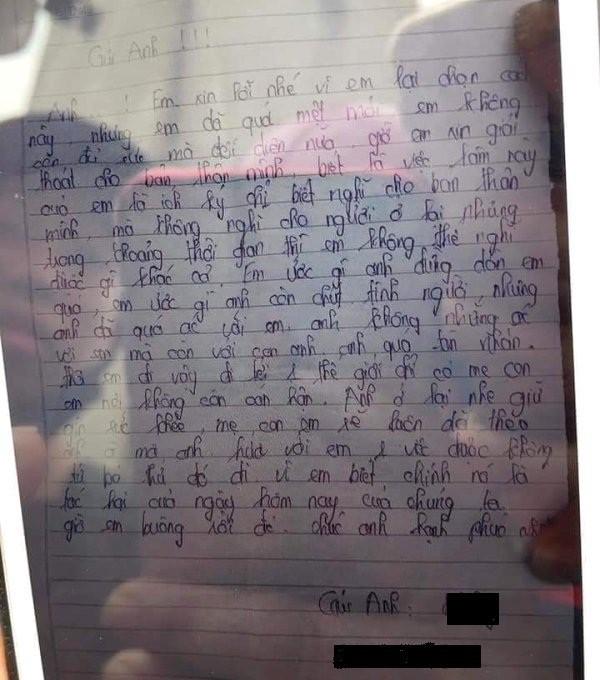 Gửi Anh !!!
Anh ! Em xin lỗi nhé vì em lại chọn cách
này, nhưng em đã quá mệt mỏi em không
còn đủ sức mà đối diện nữa, giờ em xin giải
thoát cho bản thân mình, biết là việc làm này
của em là ích kỷ chỉ biết nghĩ cho bản thân
mình, mà không nghĩ cho người ở lại nhưng
trong khoảng thời gian thì em không thể nghĩ
được gì khác cả. Em ước gì anh đừng dồn em
quá, em ước gì anh còn chút tình người nhưng
anh đã quá ác với em, anh không những ác
với em mà còn với con anh, anh quá tàn nhẫn.
Thì em đi vậy đi tới 1 thế giới chỉ có mẹ con
em nơi không còn oan hận. Anh ở lại nhe giữ
gìn sức khỏe, mẹ con em sẽ luôn dõi theo
anh mà anh hứa với em 1 việc được không
từ bỏ thứ đó đi vì em biết chính nó là
tác hại của ngày hôm nay của chúng ta.
giờ em buông rồi đó. chúc anh hạnh phúc
Gửi Anh: